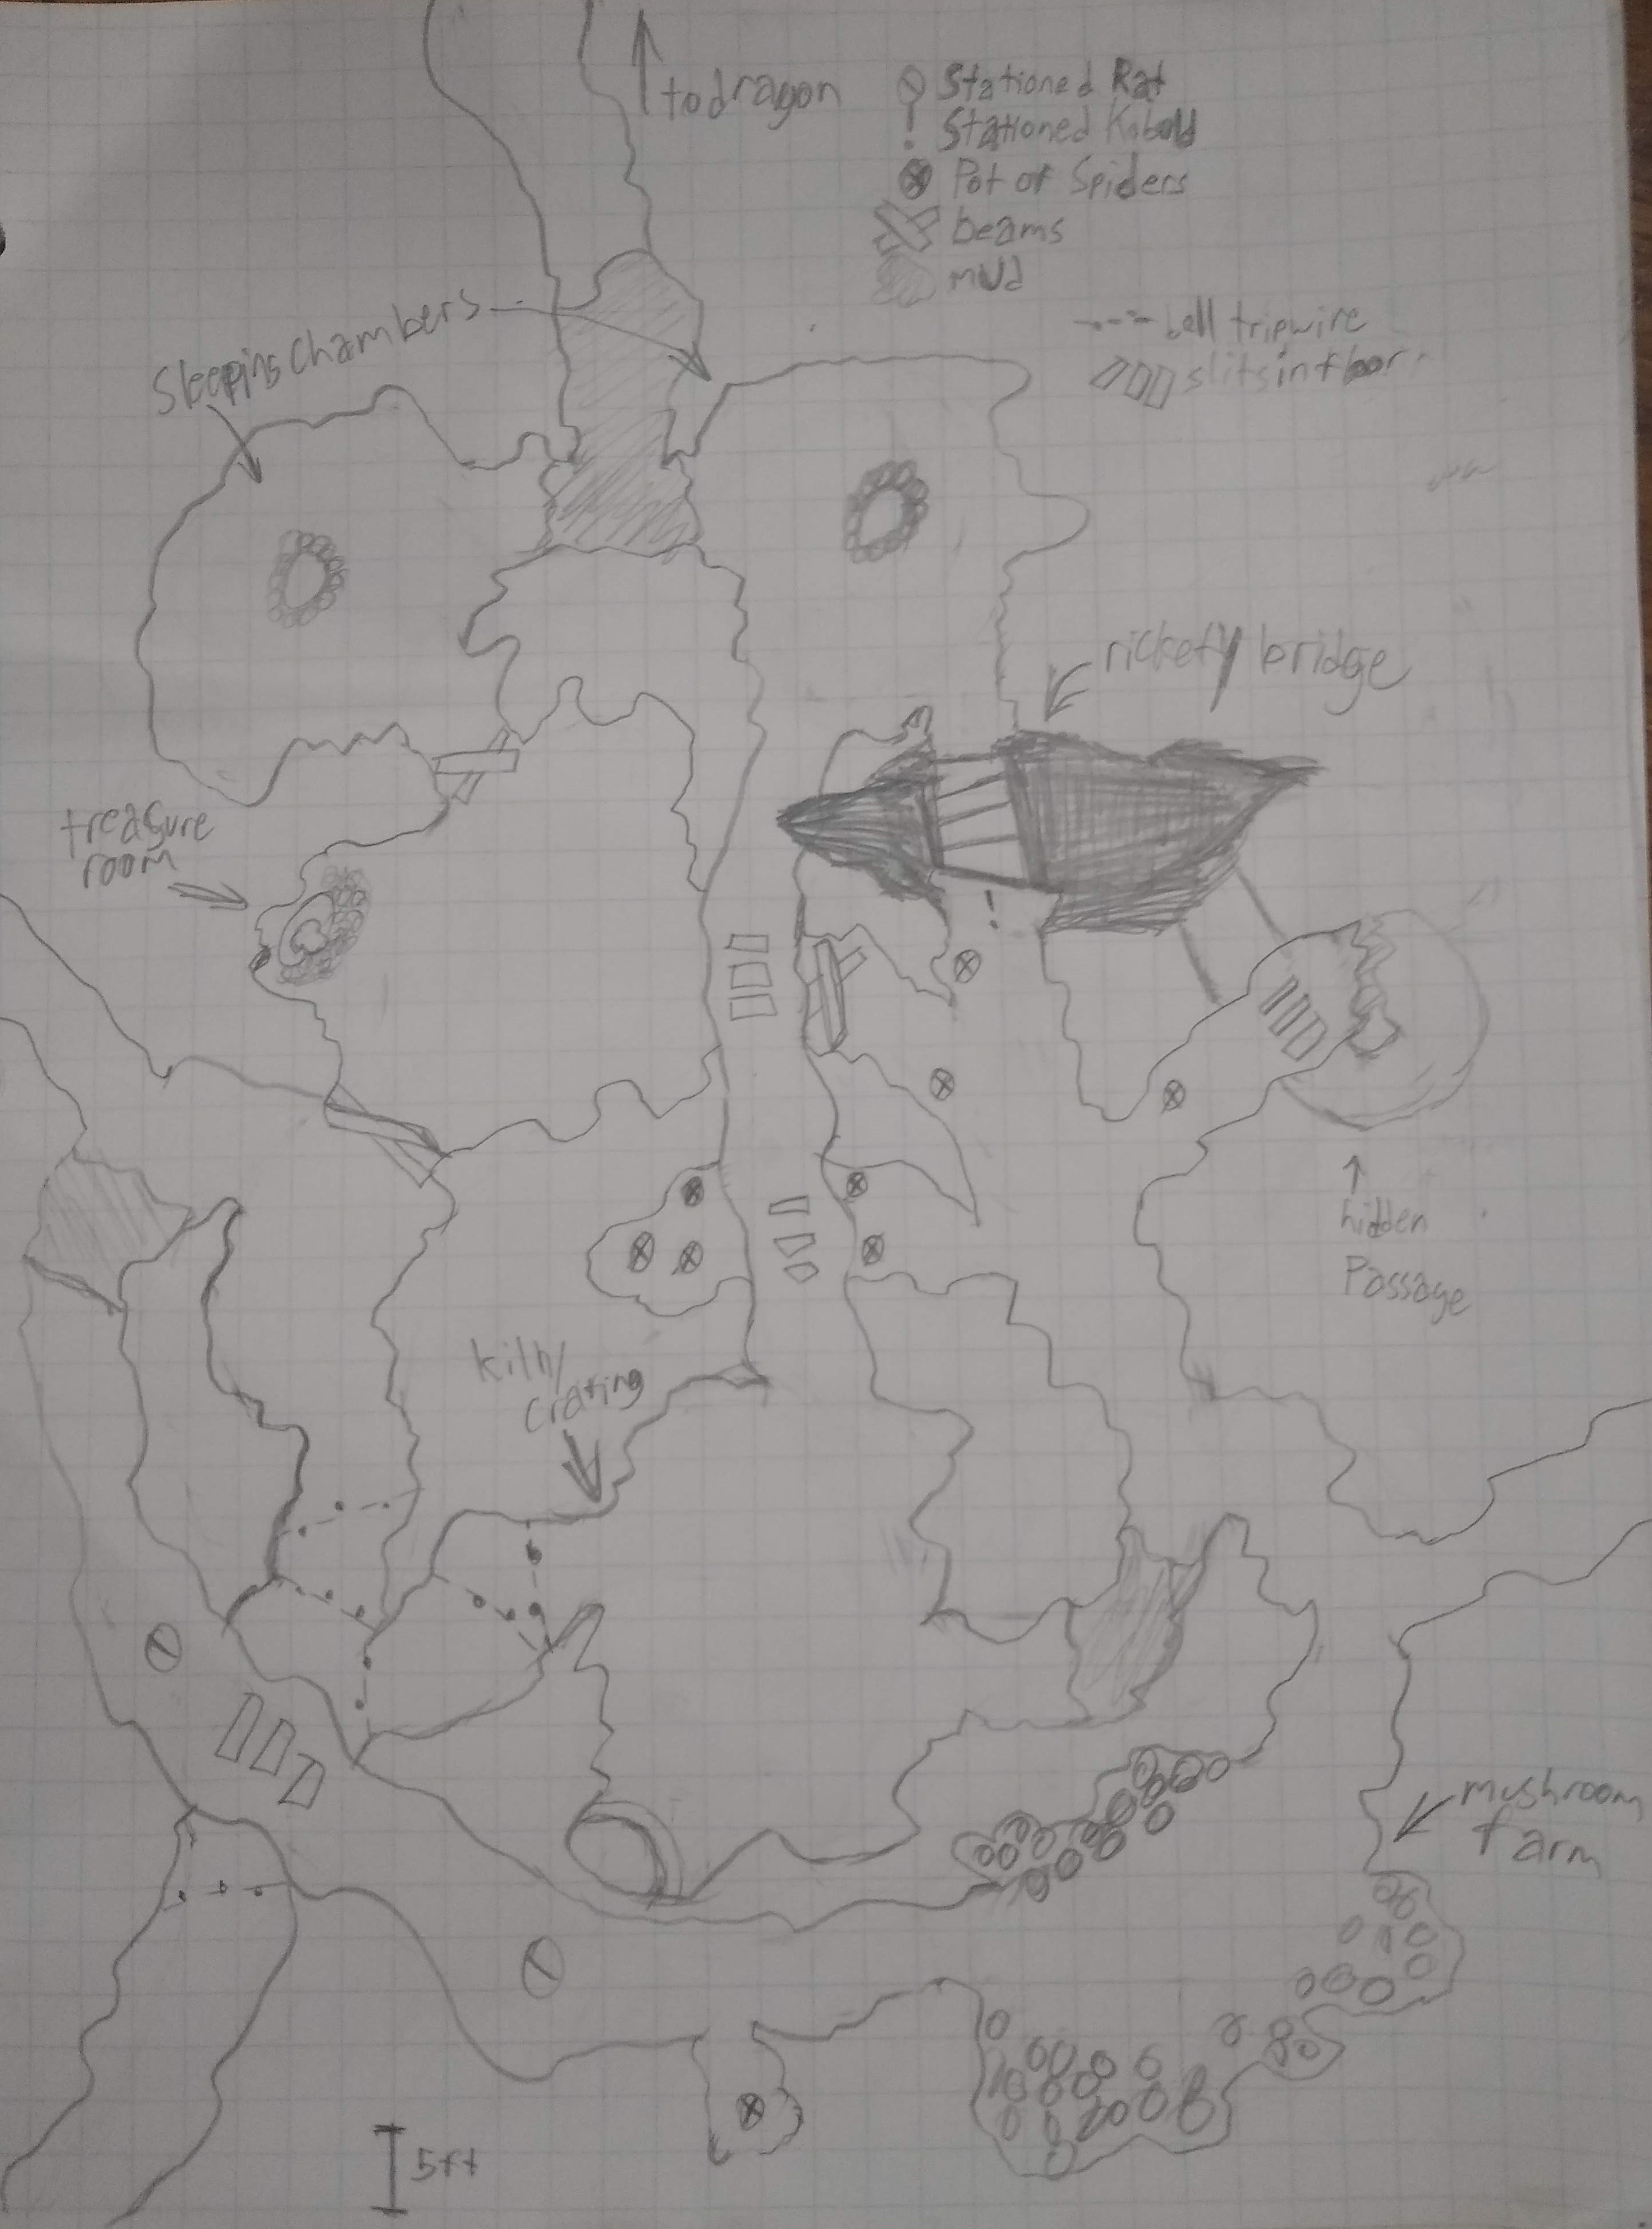 to dragon
Stationed Rat
! Stationed Kobold
Pot of Spiders
beams
mud
bell tripwire
slits in floor
Sleeping Chambers
rickety bridge
treasure
room
!
hidden
Passage
kiln/
crating
mushroom
farm
5ft